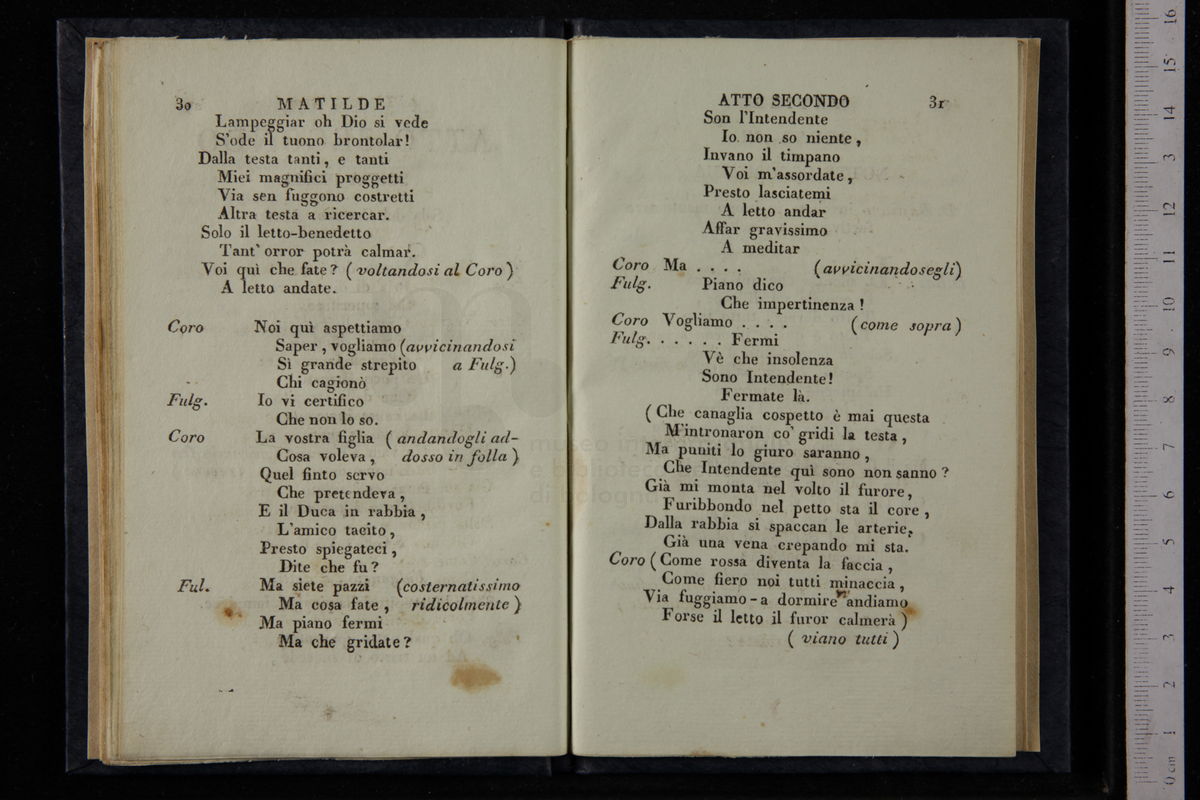 30 MATILDE
Lampeggiar oh Dio si vede
S'ode il tuono brontolar!
Dalla testa tanti, e tanti
Miei magnifici proggetti
Via sen fuggono costretti
Altra testa a ricercar.
Solo il letto-benedetto
Tant' orror potrà calmar.
Voi quì che fate? (voltandosi al Coro)
A letto andate.
Coro Noi quì aspettiamo
Saper, vogliamo (avvicinandosi
Sì grande strepito a Fulg.)
Chi cagionò
Fulg. Io vi certifico
Che non lo so.
Coro La vostra figlia (andandogli ad-
Cosa voleva, dosso in folla)
Quel finto servo
Che pretendeva,
E il Duca in rabbia,
L'amico tacito,
Presto spiegateci,
Dite che fu?
Ful. Ma siete pazzi (costernatissimo
Ma cosa fate, ridicolmente)
Ma piano fermi
Ma che gridate?
ATTO SECONDO 31
Son l'Intendente
Io non so niente,
Invano il timpano
Voi m'assordate,
Presto lasciatemi
A letto andar
Affar gravissimo
A meditar
Coro Ma . . . . (avvicinandosegli)
Fulg. Piano dico
Che impertinenza!
Coro Vogliamo . . . . (come sopra)
Fulg. . . . . . . Fermi
Vè che insolenza
Sono Intendente!
Fermate là.
(Che canaglia cospetto è mai questa
M'intronaron co' gridi la testa,
Ma puniti lo giuro saranno,
Che Intendente quì sono non sanno?
Già mi monta nel volto il furore,
Furibbondo nel petto sta il core,
Dalla rabbia si spaccan le arterie,
Già una vena crepando mi sta.
Coro (Come rossa diventa la faccia,
Come fiero noi tutti minaccia,
Via fuggiamo-a dormire andiamo
Forse il letto il furor calmerà)
(viano tutti)
0 cm 1 2 3 4 5 6 7 8 9 10 11 12 13 14 15 16